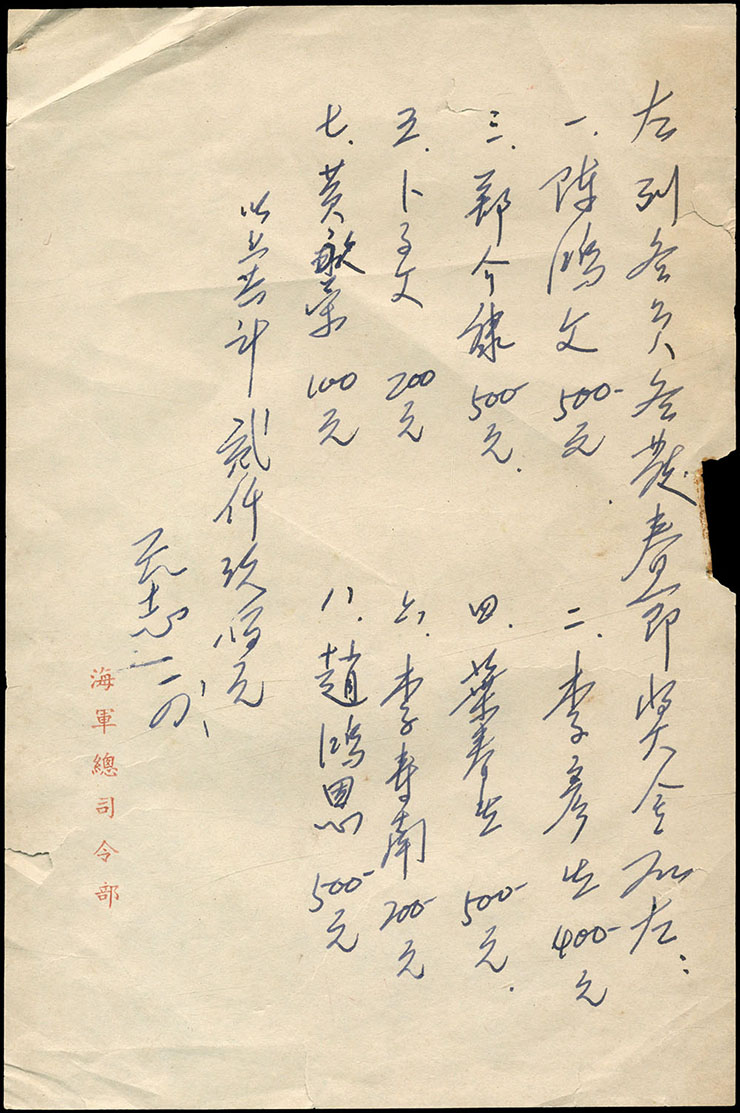 左列各員各發春節奬金如左：
一、陳鴻文 500-元． 二、李彥生 400-元
三、鄭介 500-元． 四、葉春生 500-元．
五、卜子文 200元 六、李壽南 200-元
七、黃敏榮 100元 八、趙鴻恩 500-元
以上共計貳仟玖佰元
志 一、四
海軍總司令部